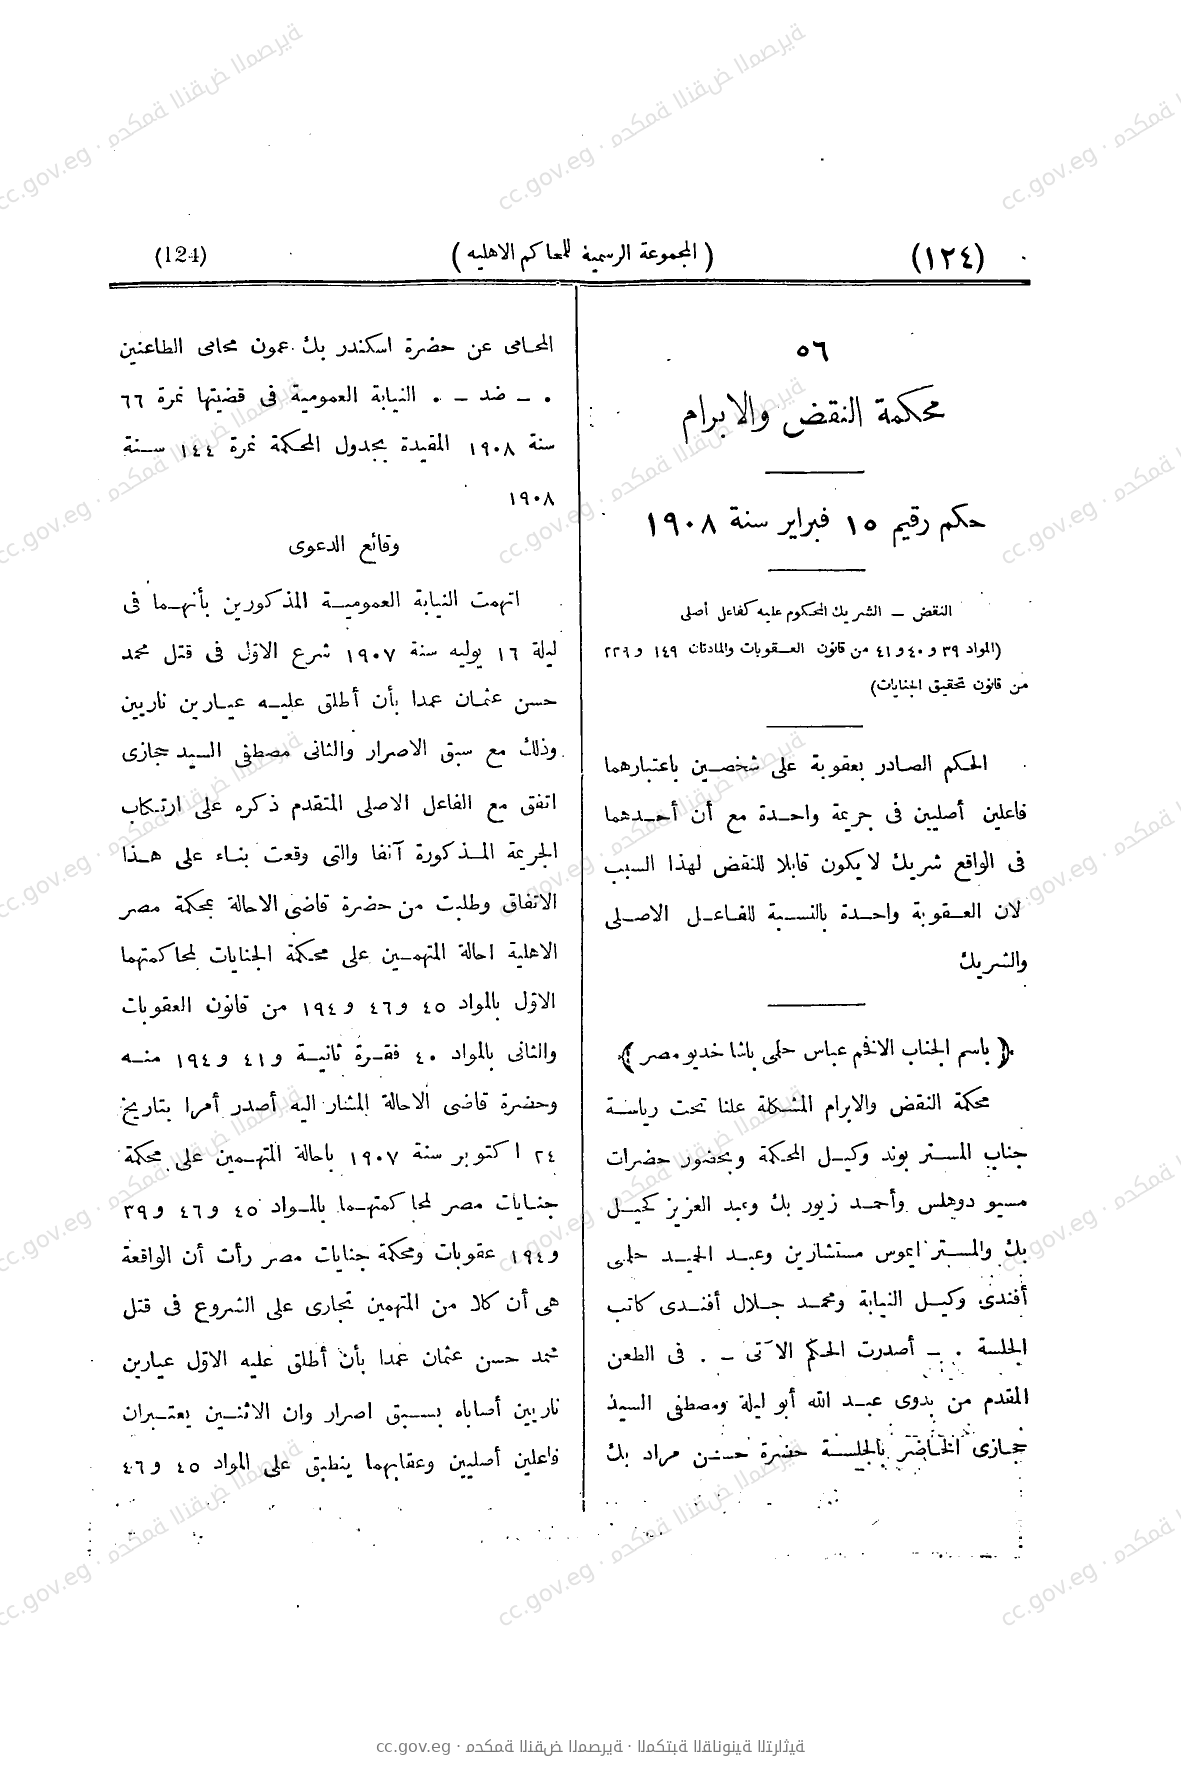 (١٢٤)
( المجموعة الرسمية للمحاكم الاهلية )
(124)
٥٦
محكمة النقض والابرام
حكم رقيم ١٥ فبراير سنة ١٩٠٨
النقض – الشريك المحكوم عليه كفاعل أصلى
(المواد ٣٩ و٤٠ و٤١ من قانون العقوبات والمادتان ١٤٩ و٢٢٩
من قانون تحقيق الجنايات)
الحكم الصادر بعقوبة على شخصين باعتبارهما
فاعلين أصليين فى جريمة واحدة مع أن أحدهما
فى الواقع شريك لا يكون قابلا للنقض لهذا السبب
لان العقوبة واحدة بالنسبة للفاعل الاصلى
والشريك
﴿ باسم الجناب الافخم عباس حلمى باشا خديو مصر ﴾
محكمة النقض والابرام المشكلة علنا تحت رياسة
جناب المستر بوند وكيل المحكمة وبحضور حضرات
مسيو دوهلس وأحمد زيور بك وعبد العزيز كحيل
بك والمستر ايموس مستشارين وعبد الحميد حلمى
أفندى وكيل النيابة ومحمد جلال أفندى كاتب
الجلسة . – أصدرت الحكم الآتى – . فى الطعن
المقدم من بدوى عبد الله أبو ليلة ومصطفى السيد
حجازى الحاضر بالجلسة حضرة حسن مراد بك
المحامى عن حضرة اسكندر بك عمون محامى الطاعنين
. – ضد – . النيابة العمومية فى قضيتها نمرة ٦٦
سنة ١٩٠٨ المقيدة بجدول المحكمة نمرة ١٤٤ سنة
١٩٠٨
وقائع الدعوى
اتهمت النيابة العمومية المذكورين بأنهما فى
ليلة ١٦ يوليه سنة ١٩٠٧ شرع الاول فى قتل محمد
حسن عثمان عمدا بأن أطلق عليه عيارين ناريين
وذلك مع سبق الاصرار والثانى مصطفى السيد حجازى
اتفق مع الفاعل الاصلى المتقدم ذكره على ارتكاب
الجريمة المذكورة آنفا والتى وقعت بناء على هذا
الاتفاق وطلبت من حضرة قاضى الاحالة بمحكمة مصر
الاهلية احالة المتهمين على محكمة الجنايات لمحاكمتهما
الاول بالمواد ٤٥ و٤٦ و١٩٤ من قانون العقوبات
والثانى بالمواد ٤٠ فقرة ثانية و٤١ و١٩٤ منه
وحضرة قاضى الاحالة المشار اليه أصدر أمرا بتاريخ
٢٤ اكتوبر سنة ١٩٠٧ باحالة المتهمين على محكمة
جنايات مصر لمحاكمتهما بالمواد ٤٥ و٤٦ و٣٩
و١٩٤ عقوبات ومحكمة جنايات مصر رأت أن الواقعة
هى أن كلا من المتهمين تجارى على الشروع فى قتل
محمد حسن عثمان عمدا بأن أطلق عليه الاول عيارين
ناريين أصاباه بسبق اصرار وان الاثنين يعتبران
فاعلين أصليين وعقابهما ينطبق على المواد ٤٥ و٤٦
cc.gov.eg · محكمة النقض المصرية · المكتبة القانونية التراثية